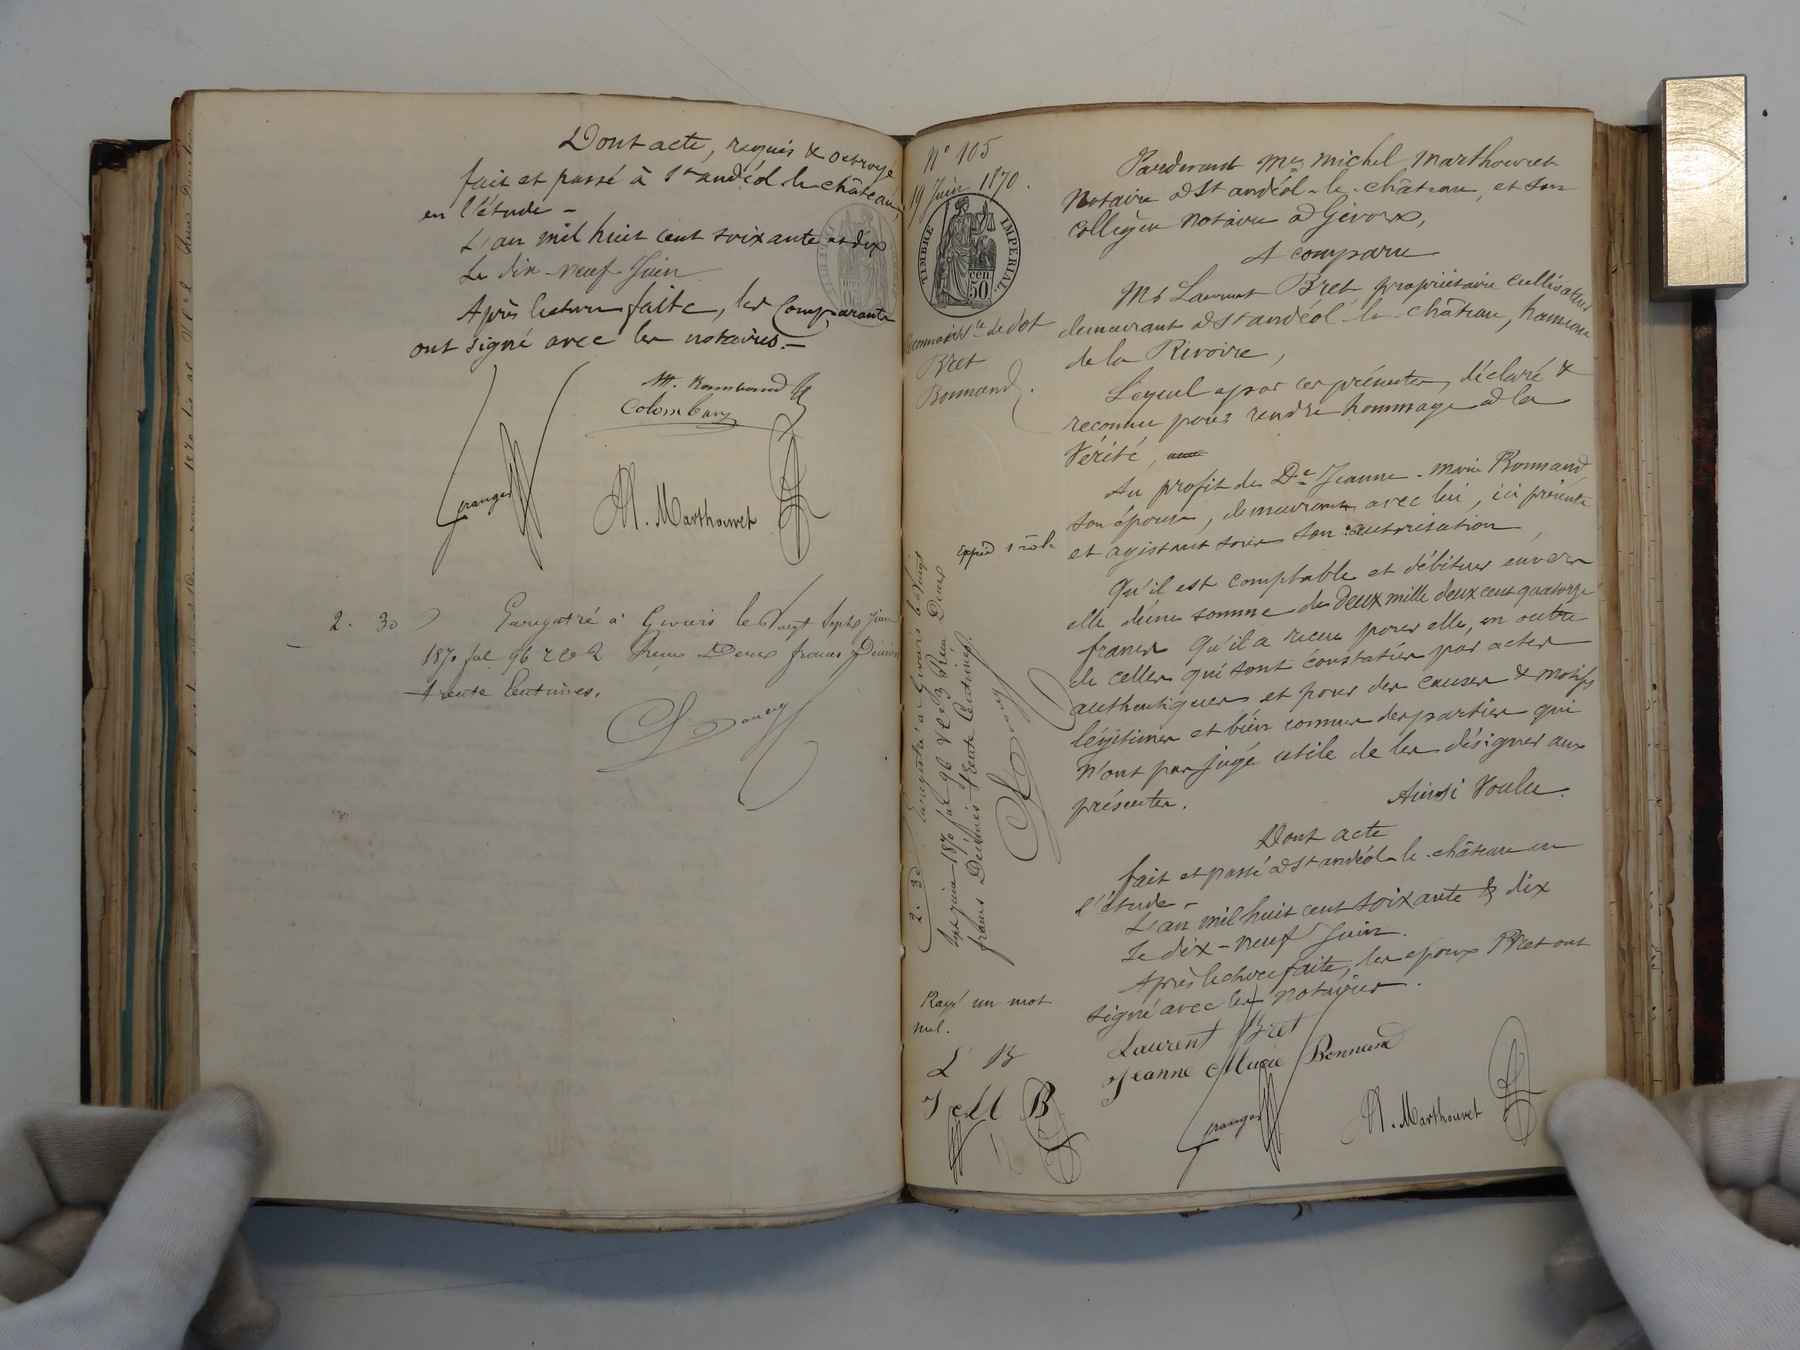 Dont acte, requis & octroyé,
fait et passé à St andéol-le-château,
en l'étude -
L'an mil huit cent soixante et dix
Le dix-neuf Juin
Après lecture faite, les Comparants
ont signé avec les notaires. -
Colomban
granger
M. Marthouret
2. 30
Enregistré à Givors le Vingt Sept Juin
1870 fol 96 Reçu Deux francs Décimes
trente Centimes.
N° 105
19 Juin 1870.
TIMBRE IMPÉRIAL
50 cen
Reconnaissce de dot
Bret
Bonnand.
Expéd 1 rôle
2. 30 Enregistré à Givors le Vingt
Sept Juin 1870 fol 96 Reçu Deux
francs Décimes trente Centimes.
Rayé un mot
nul.
L B
J M B
Pardevant Me Michel Marthouret
Notaire à St andéol-le-château, et son
collègue notaire à Givors,
A comparu
Mr Laurent Bret propriétaire cultivateur
demeurant à St andéol-le-château, hameau
de la Rivoire,
Lequel a par ces présentes, déclaré &
reconnu pour rendre hommage à la
Vérité,
Au profit de De Jeanne-Marie Bonnand
son épouse, demeurant avec lui, ici présente
et agissant sous son autorisation,
Qu'il est comptable et débiteur envers
elle d'une somme de deux mille deux cent quatorze
francs qu'il a reçue pour elle, en outre
de celles qui sont constatées par actes
authentiques et pour des causes & motifs
légitimes et bien connus des parties qui
n'ont pas jugé utile de les désigner aux
présentes.
Ainsi Voulu.
Dont acte
fait et passé à St andéol-le-château en
l'étude -
L'an mil huit cent soixante & dix
Le dix-neuf Juin.
Après lecture faite, les époux Bret ont
signé avec les notaires.
Laurent Bret
Jeanne Marie Bonnand
granger
M. Marthouret